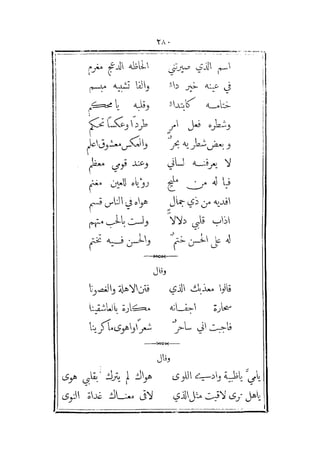 ٢٨٠
اسم الذي صيرني الحاظه الدعج مغرم
في عينه خير دال والفا تشبيه مبسم
ختامه كابتداء وقلبه يا محكم
وشطره فعل امر طرداً وعكساً تحكم
وبعض شطريه بحرٌ والعكس معشوق اعلم
لا يعرفنه لساني وعند قومي معظم
فيا له من مليح رؤياه للعين مغنم
افديه من ذي جمال هواه في الناس قسم
اذاب قلبي دلالاً ولست بالحب متهم
له على الحسن ختمٌ والحسن فيه تختم
وقال
قالوا معذبك الذي فتن الاهلة والغصونا
سحارة اجفانه مكارة بالعاشقينا
فاجبت اني ساحرٌ شعراً واهوى ماكرينا
وقال
يامي ياظبية وادي اللوى هواك لم يترك بقلبي هوى
ياهل ترى لاقيت مثل الذي لاقى معناك غداة النوى